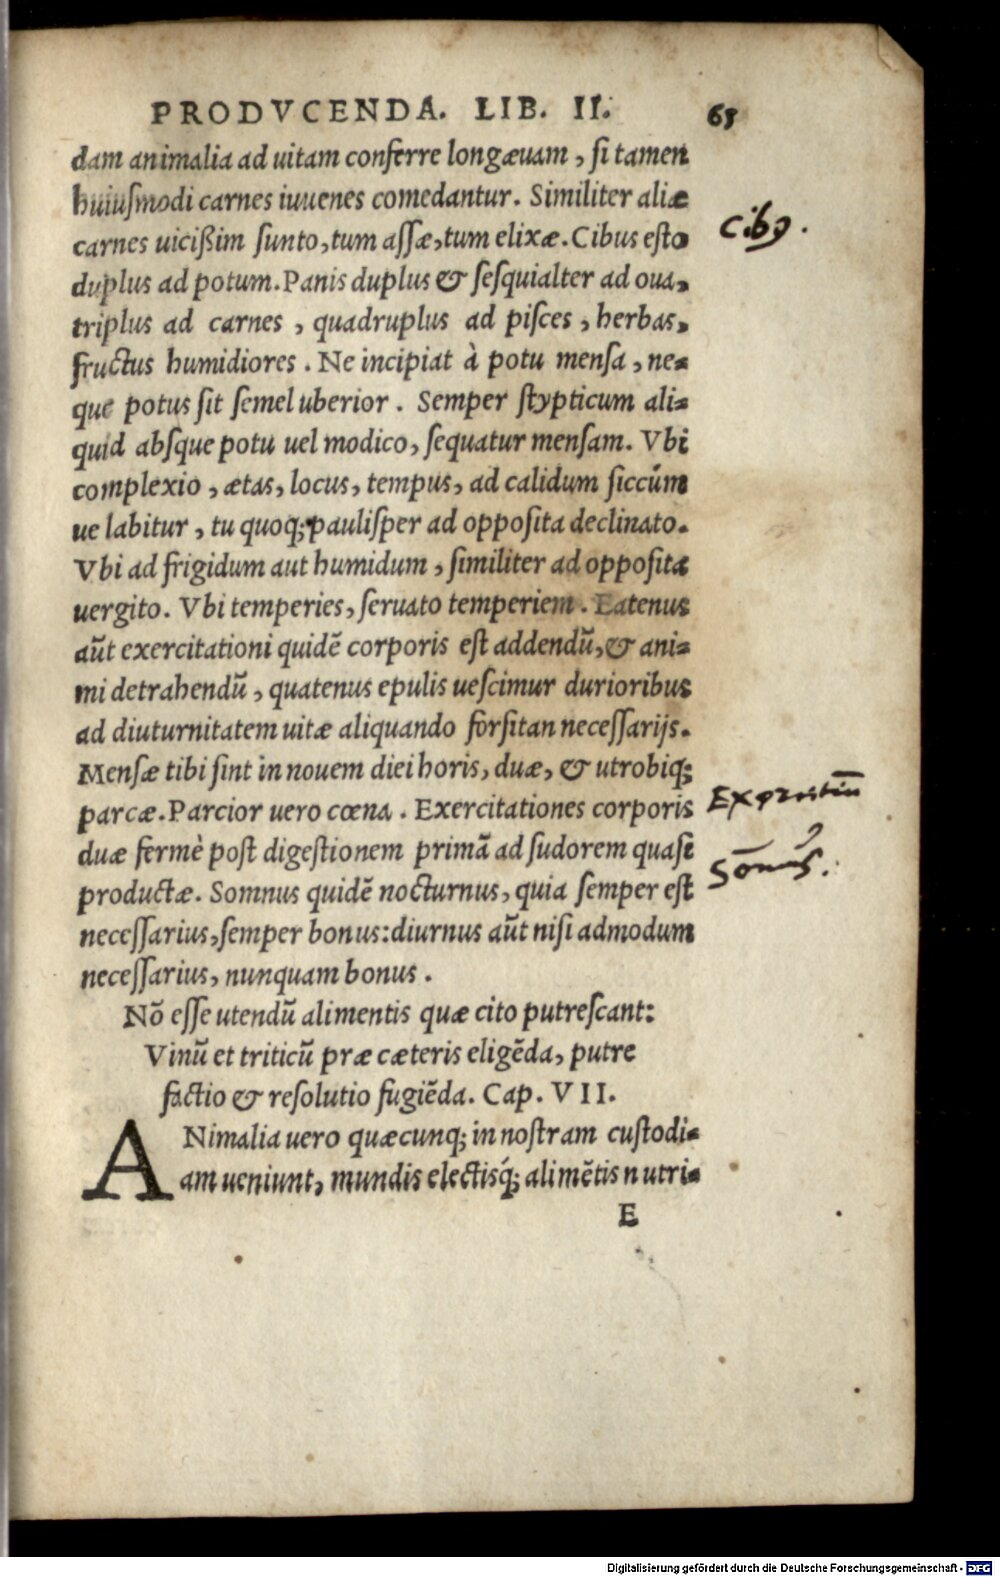 PRODVCENDA. LIB. II. 65
dam animalia ad uitam conferre longæuam, si tamen
huiusmodi carnes iuuenes comedantur. Similiter aliæ
carnes uicißim sunto, tum assæ, tum elixæ. Cibus esto
Cib9.
duplus ad potum. Panis duplus & sesquialter ad oua,
triplus ad carnes, quadruplus ad pisces, herbas,
fructus humidiores. Ne incipiat à potu mensa, ne=
que potus sit semel uberior. Semper stypticum ali=
quid absque potu uel modico, sequatur mensam. Vbi
complexio, ætas, locus, tempus, ad calidum siccúm
ue labitur, tu quoq; paulisper ad opposita declinato.
Vbi ad frigidum aut humidum, similiter ad opposita
uergito. Vbi temperies, seruato temperiem. Eatenus
aũt exercitationi quidẽ corporis est addendũ, & ani=
mi detrahendũ, quatenus epulis uescimur durioribus
ad diuturnitatem uitæ aliquando forsitan necessarijs.
Mensæ tibi sint in nouem diei horis, duæ, & utrobiq;
parcæ. Parcior uero cœna. Exercitationes corporis
duæ fermè post digestionem primã ad sudorem quasi
Sõnus.
productæ. Somnus quidẽ nocturnus, quia semper est
necessarius, semper bonus: diurnus aũt nisi admodum
necessarius, nunquam bonus.
Nõ esse utendũ alimentis quæ cito putrescant:
Vinũ et triticũ præ cæteris eligẽda, putre
factio & resolutio fugiẽda. Cap. VII.
ANimalia uero quæcunq; in nostram custodi=
am ueniunt, mundis electisq́; alimẽtis nutri=
E
Digitalisierung gefördert durch die Deutsche Forschungsgemeinschaft - DFG